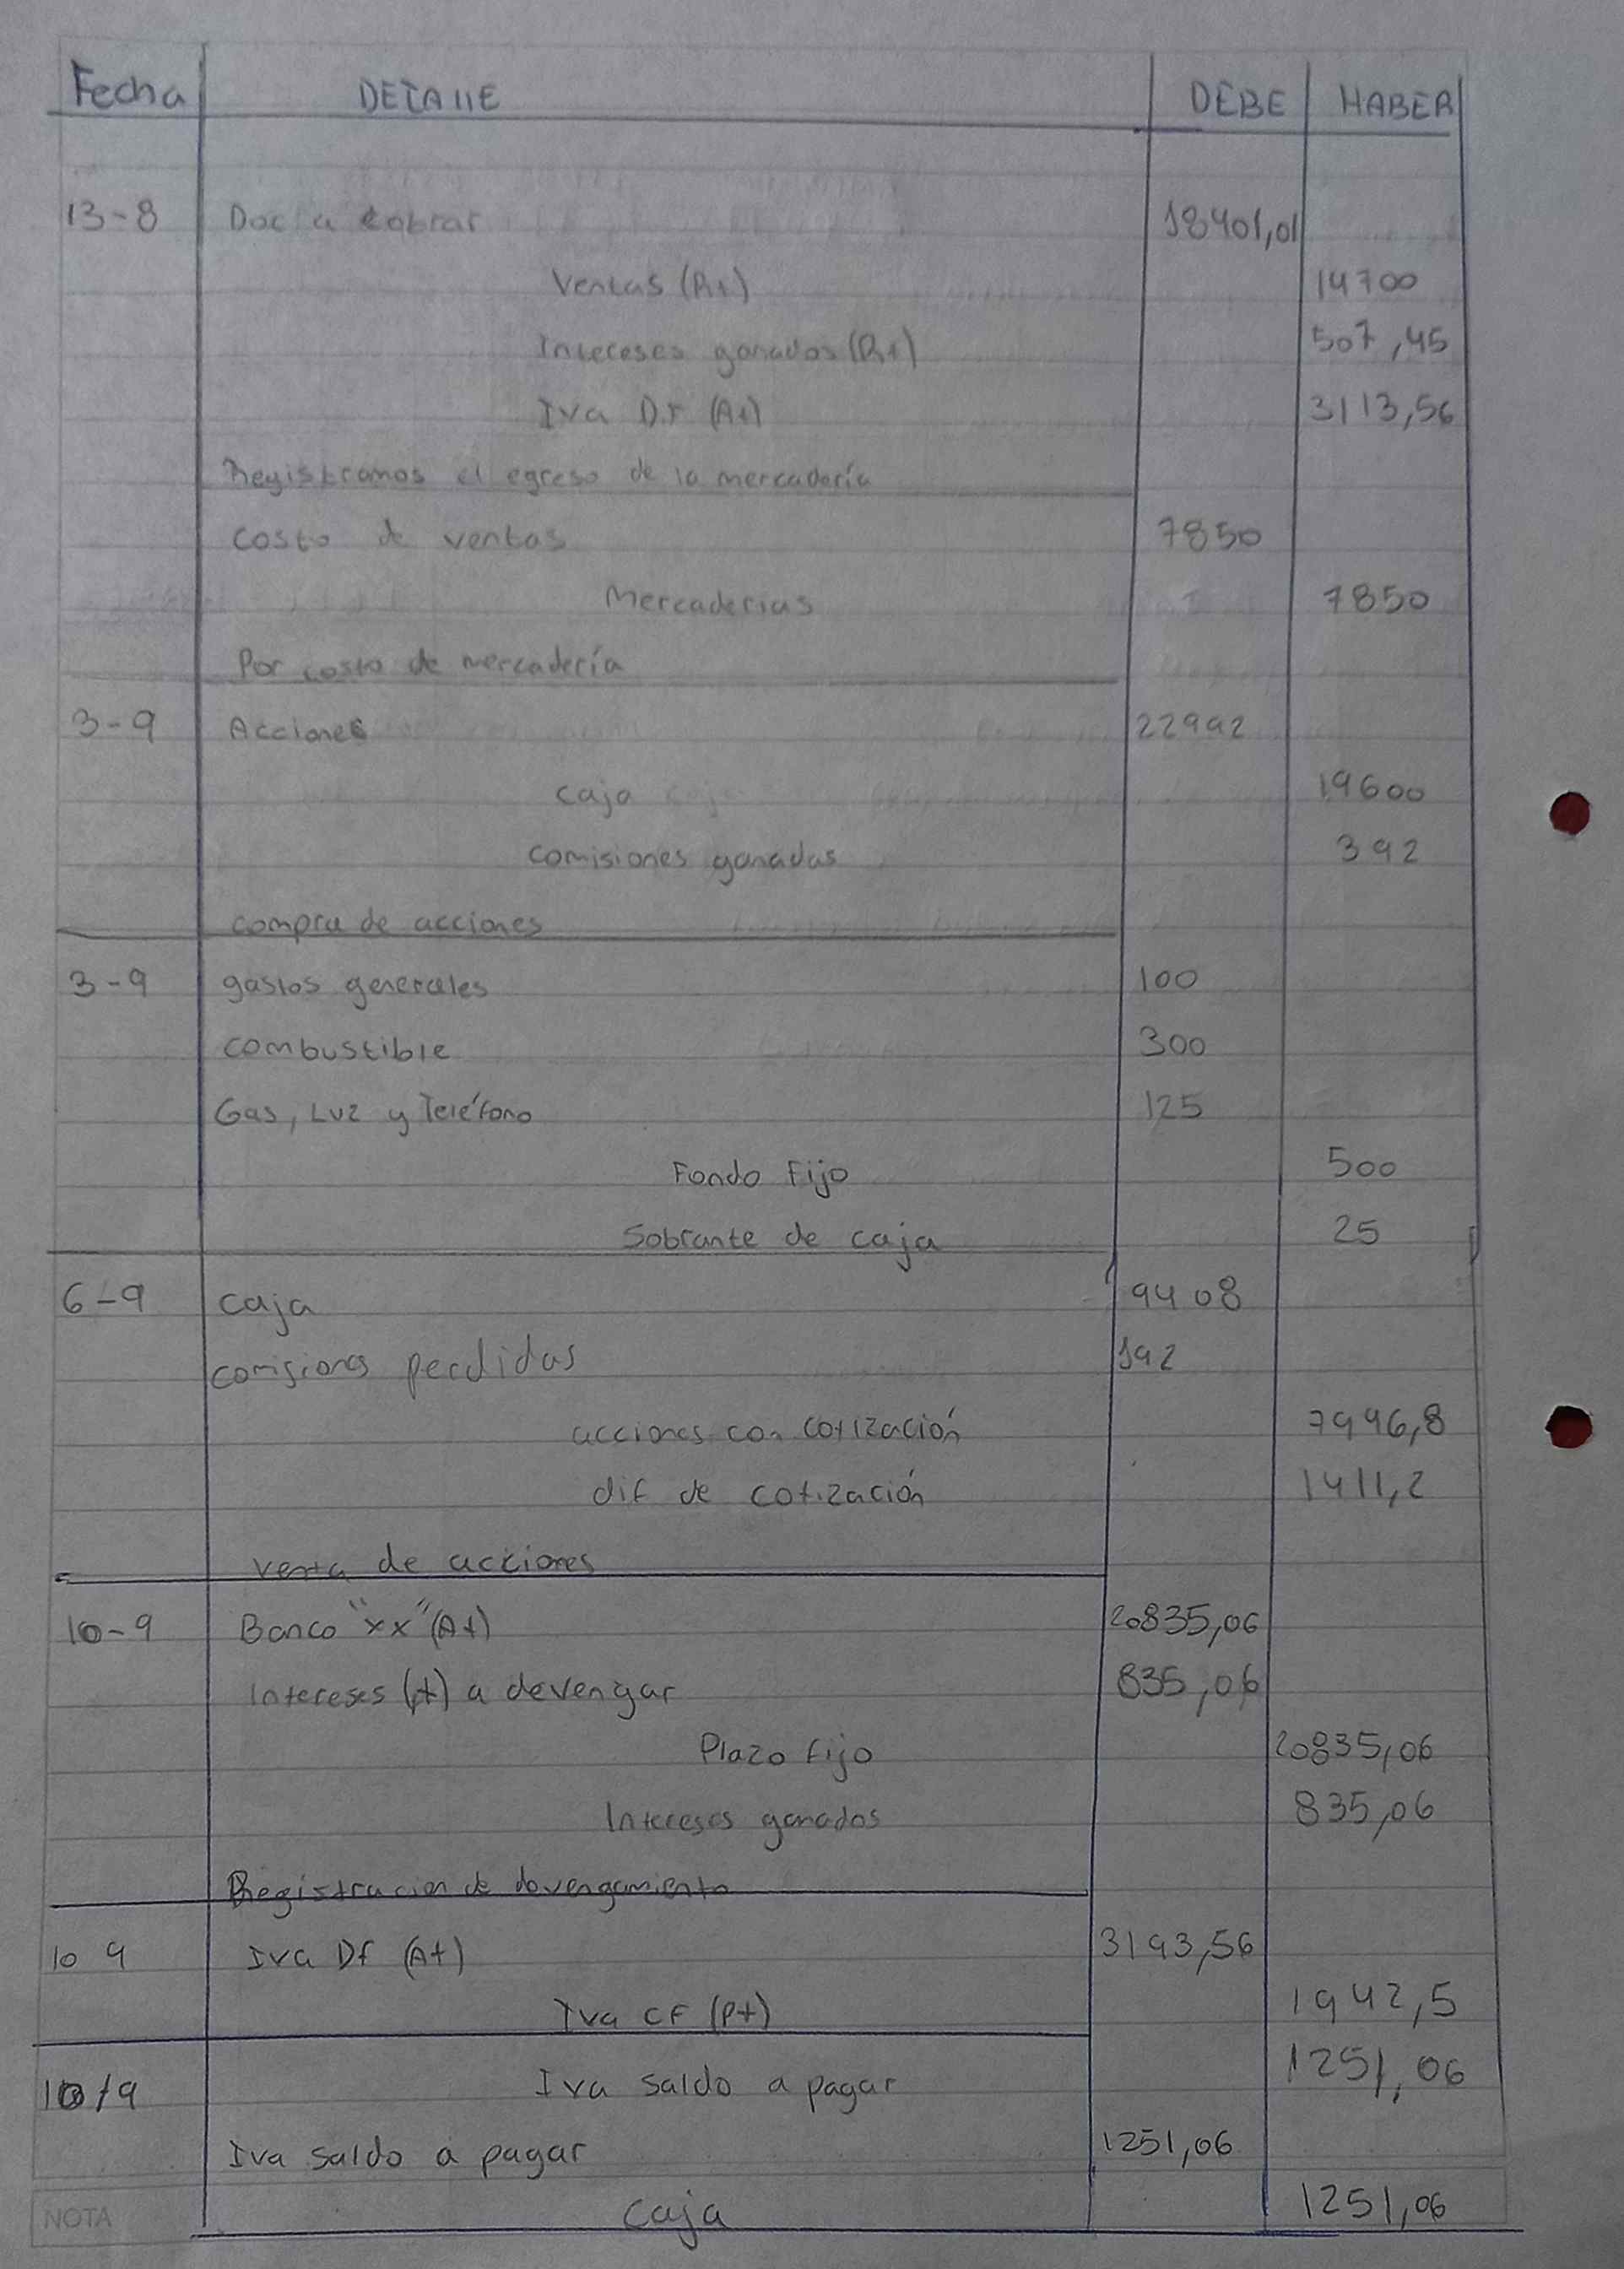 Fecha DETAllE DEBE HABER
13-8 Doc a cobrar 18401,01
Ventas (R+) 14700
Intereses ganados (R+) 507,45
Iva D.F (A+) 3113,56
Registramos el egreso de la mercadería
Costo de ventas 7850
Mercaderias 7850
Por costo de mercadería
3-9 Acciones 22992
Caja 19600
Comisiones ganadas 392
compra de acciones
3-9 gastos generales 100
combustible 300
Gas, Luz y Teléfono 125
Fondo Fijo 500
Sobrante de caja 25
6-9 caja 9408
comisiones perdidas 192
acciones con cotización 7996,8
dif de cotización 1411,2
venta de acciones
10-9 Banco "xx" (A+) 20835,06
Intereses (+) a devengar 835,06
Plazo fijo 20835,06
Intereses ganados 835,06
Registracion de devengamiento
10 9 Iva Df (A+) 3193,56
Iva CF (P+) 1942,5
10/9 Iva saldo a pagar 1251,06
Iva saldo a pagar 1251,06
NOTA Caja 1251,06